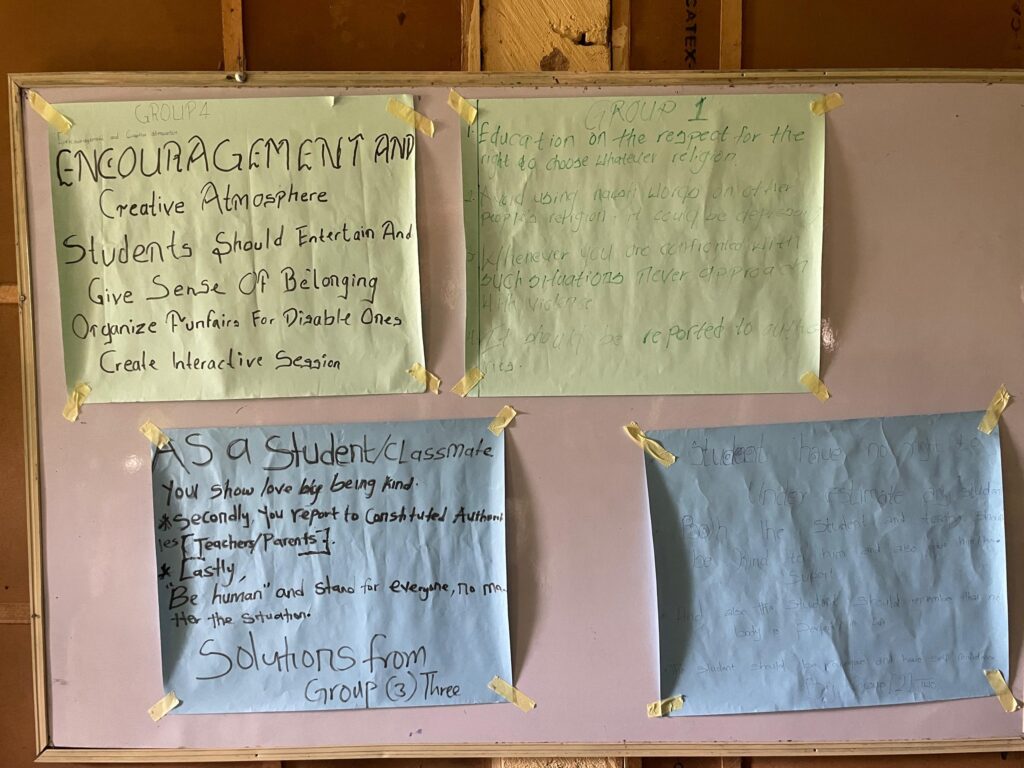 CATEX
GROUP 4
ENCOURAGEMENT AND
Creative Atmosphere
Students Should Entertain And
Give Sense Of Belonging
Organize Funfairs For Disable Ones
Create Interactive Session
GROUP 1
1. Education on the respect for the
right to choose whatever religion.
2. Avoid using harsh words on other
people's religion. it could be
3. Whenever you are confronted with
such situations never approach
with violence
4. It should be reported to
AS a Student/Classmate
You show love by being kind.
*Secondly, you report to Constituted Authori
ies [Teachers/Parents].
* Lastly,
"Be human" and stand for everyone, no ma-
tter the situation.
Solutions from
Group (3) Three
Student have no right to
Under estimate any student
Both the student and
be kind to him and also
And also the student should
body is
student should be and have self
(2) Two